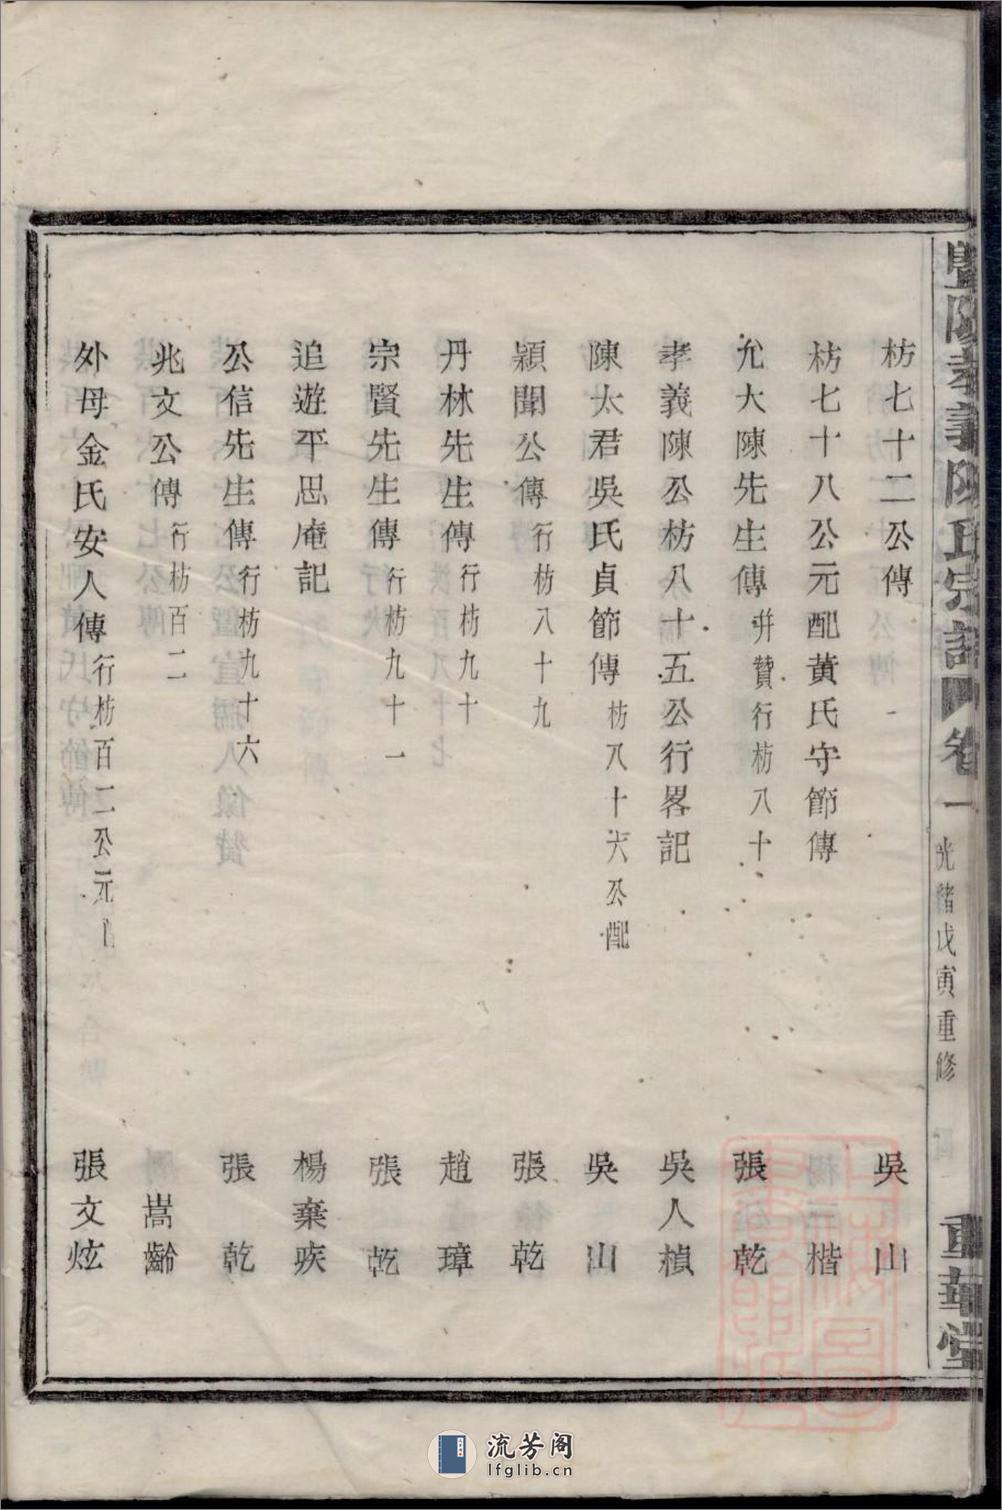 暨陽孝義陳氏宗譜 卷一 光緒戊寅重修 重華堂
枋七十二公傳 吳山
枋七十八公元配黃氏守節傳 楊三楷
允大陳先生傳 并贊行枋八十 張乾
孝義陳公枋八十五公行畧記 吳人楨
陳太君吳氏貞節傳 枋八十六公配 吳山
穎聞公傳 行枋八十九 張乾
丹林先生傳 行枋九十 趙璋
宗賢先生傳 行枋九十一 張乾
追遊平思庵記 楊棄疾
公信先生傳 行枋九十六 張乾
兆文公傳 行枋百二 嵩齡
外母金氏安人傳 行枋百二公元 張文炫
流芳阁
lfglib.cn